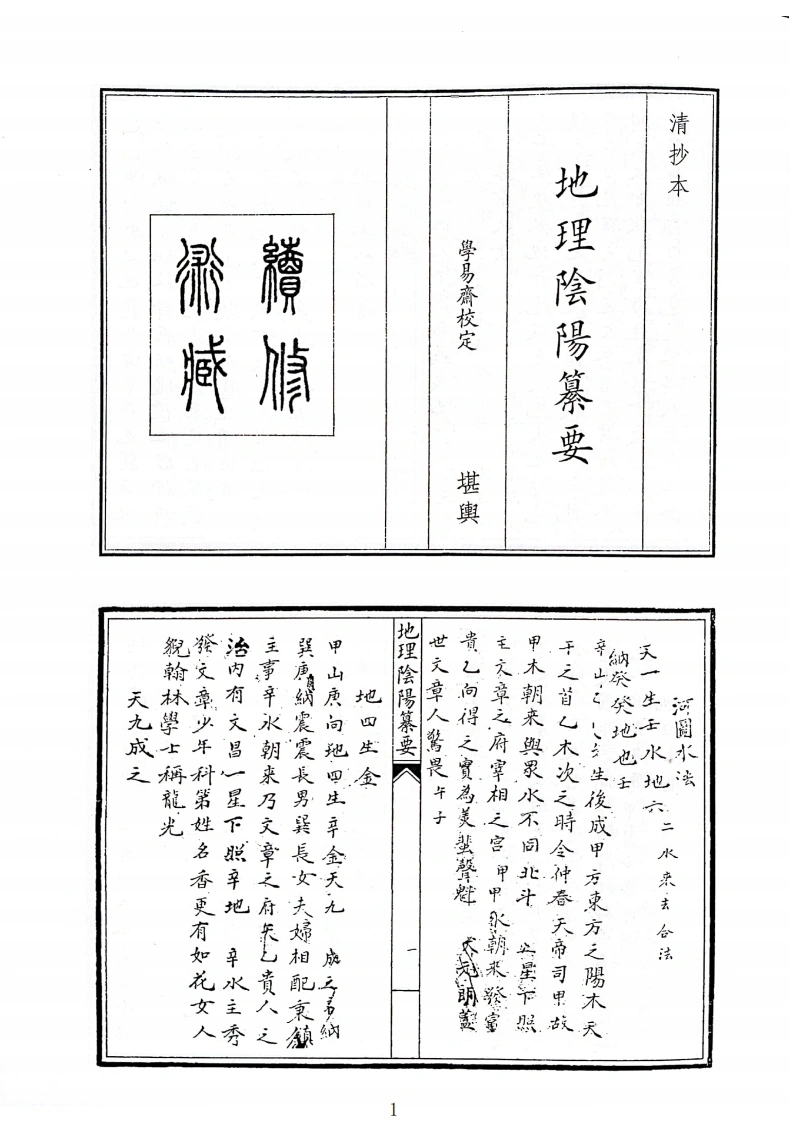 清抄本
地理陰陽纂要
學易齋校定 堪輿
續修
術藏
河圖水法
天一生壬水地六 二水來去合法
納癸癸地也壬
辛山 生後成甲方東方之陽木天
干之首乙木次之時令仲春天帝司甲故
甲木朝來與眾水不同北斗 星下照
主文章之府宰相之宮甲甲水朝來發富
貴乙向得之實為美蜚聲 朗
世文章人驚畏午子
地理陰陽纂要
一
地四生金
甲山庚向地四生辛金天九 成之 納
巽庚納震震長男巽長女夫婦相配秉鎮
主事辛水朝來乃文章之府 乙貴人之
治內有文昌一星下照辛地 辛水主秀
發文章少年科第姓名香更有如花女人
貌翰林學士稱龍光
天九成之
1